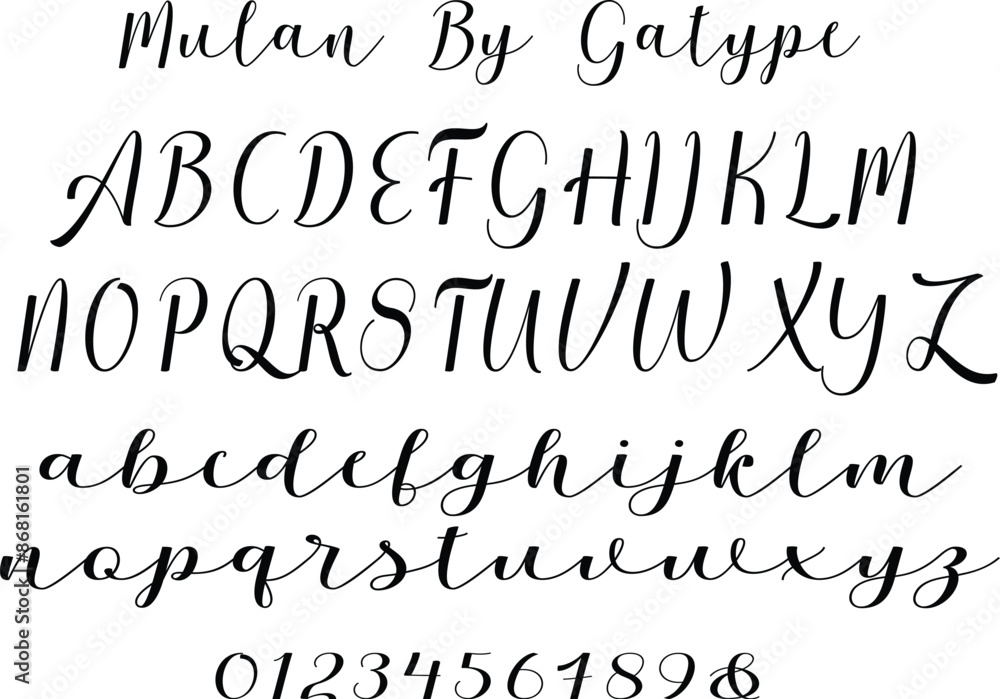 Mulan By Gatype
ABCDEFGHIJKLM
NOPQRSTUVWXYZ
abcdefghijklm
nopqrstuvwxyz
0123456789&
Adobe Stock | #868161801